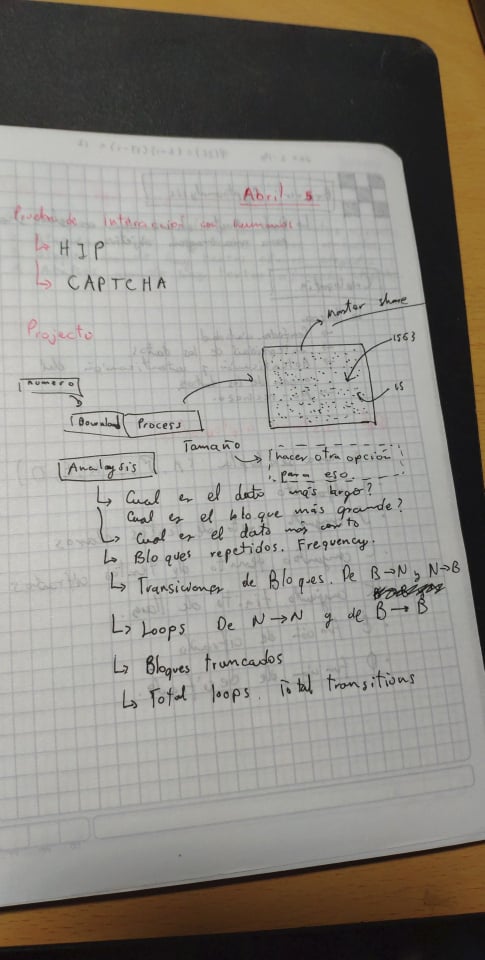 Abril 5
Prueba de interacción con humanos
↳ HIP
↳ CAPTCHA
Projecto
numero
Download
Process
1563
Tamaño
hacer otra opción
para eso
Analysis
↳ Cual es el dato más largo?
Cual es el bloque más grande?
↳ Cual es el dato más corto
↳ Bloques repetidos. Frequency.
↳ Transiciones de Bloques. De B→N y N→B
↳ Loops De N→N y de B→B
↳ Bloques truncados
↳ Total loops. Total transitions